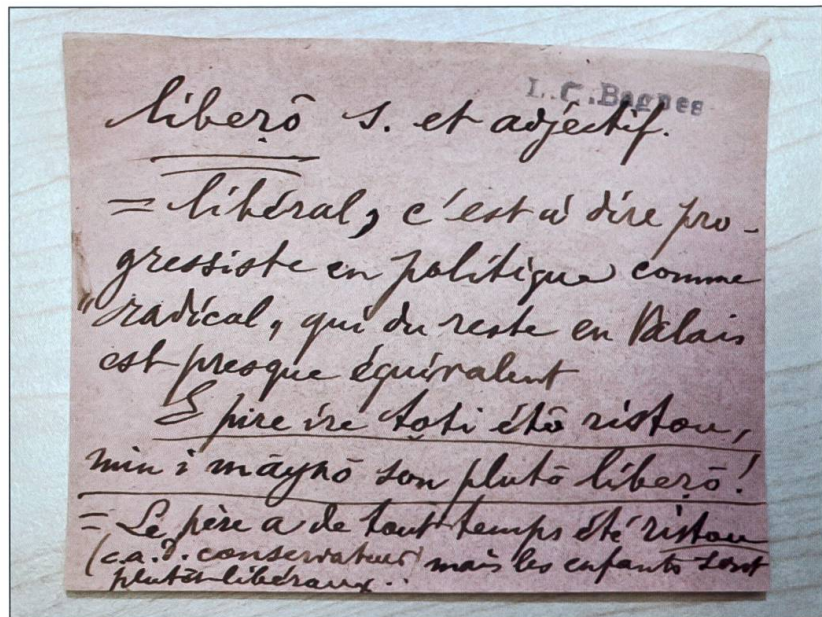 L. C. Bagnes
liberō s. et adjectif.
= libéral, c'est à dire pro-
gressiste en politique comme
"radical, qui du reste en Valais
est presque équivalent
E pire ire toti étō ristou,
min i māynō son plutō liberō!
= Le père a de tout temps été ristou
(c.a.d. conservateur) mais les enfants sont
plutôt libéraux..